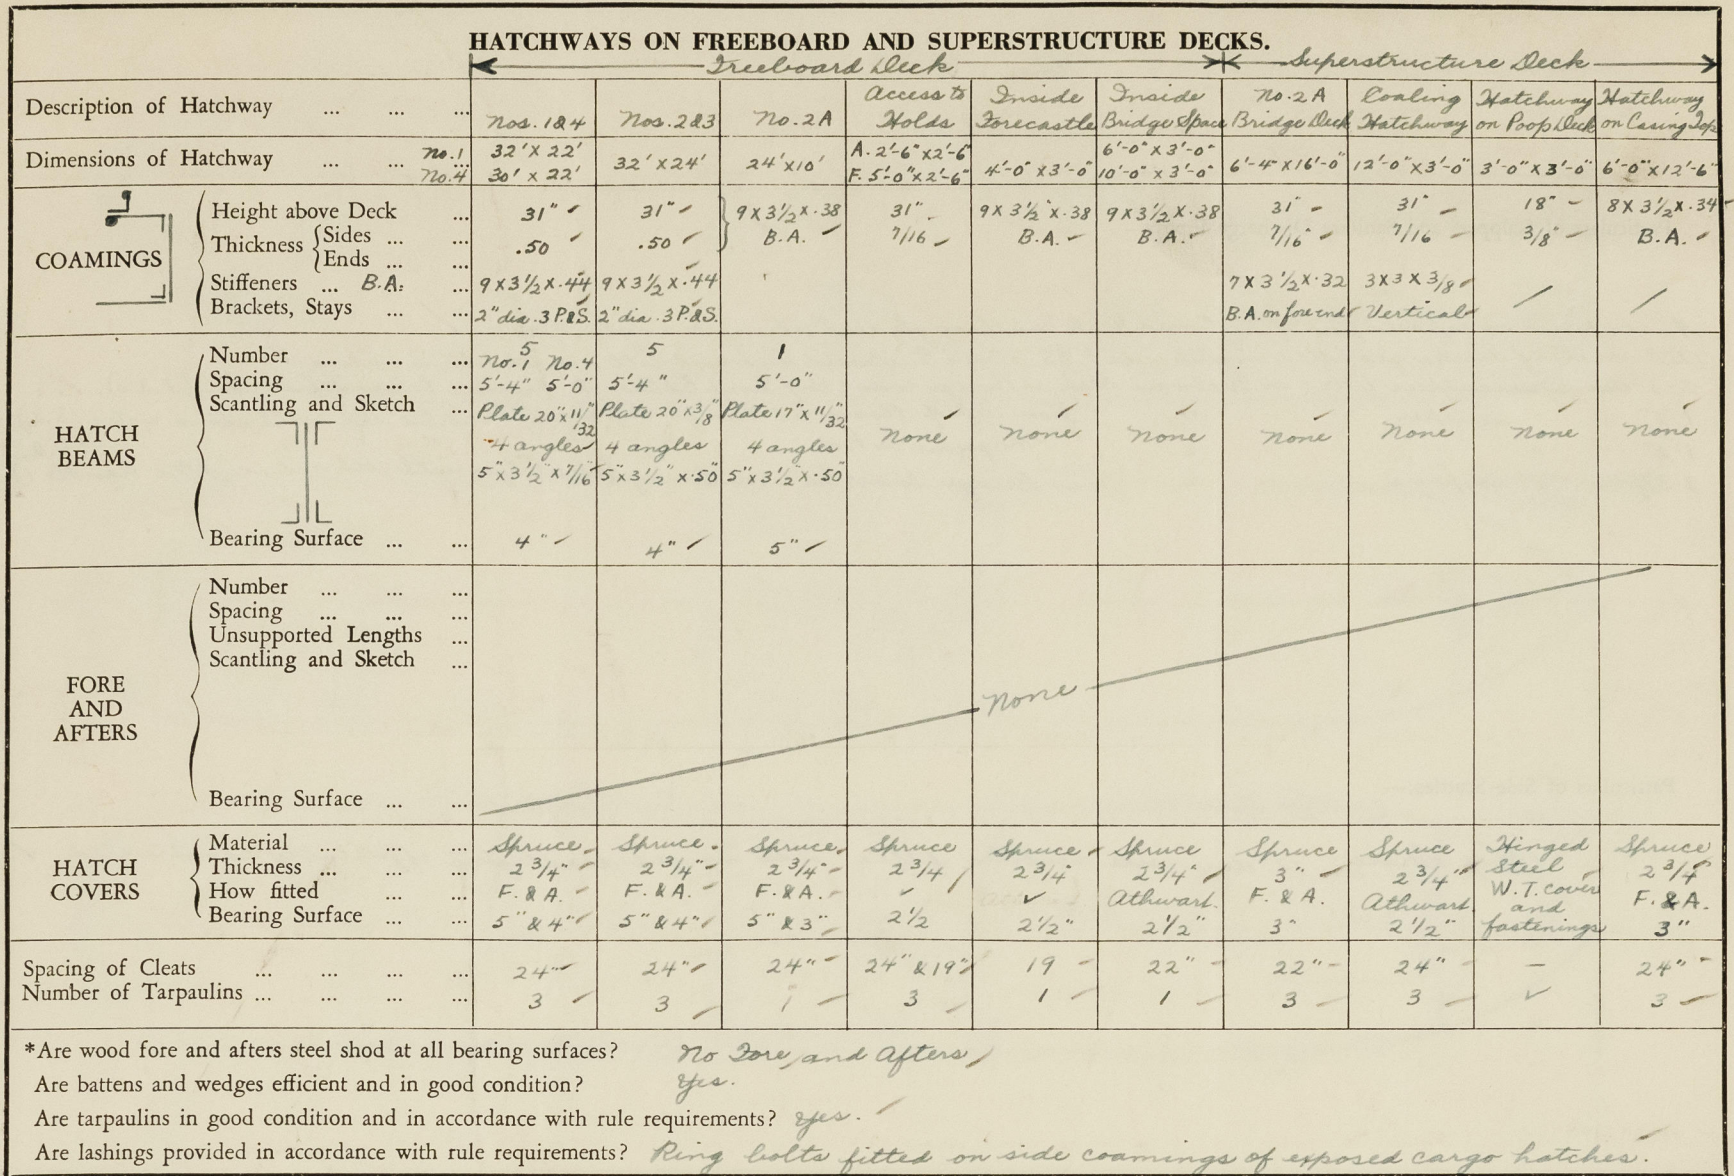 HATCHWAYS ON FREEBOARD AND SUPERSTRUCTURE DECKS.
Freeboard Deck Superstructure Deck
Description of Hatchway ... ... ... Nos. 1&4 Nos. 2&3 No. 2A Access to Holds Inside Forecastle Inside Bridge Space No. 2A Bridge Deck Coaling Hatchway Hatchway on Poop Deck Hatchway on Casing Top
Dimensions of Hatchway ... ... No. 1 32' X 22' No. 4 30' X 22' 32' X 24' 24' X 10' A. 2'-6" X 2'-6" F. 5'-0" X 2'-6" 4'-0" X 3'-0" 6'-0" X 3'-0" 10'-0" X 3'-0" 6'-4" X 16'-0" 12'-0" X 3'-0" 3'-0" X 3'-0" 6'-0" X 12'-6"
COAMINGS
Height above Deck ... 31" 31" 9 X 3½ X .38 31" 9 X 3½ X .38 9 X 3½ X .38 31" 31" 18" 8 X 3½ X .34
Thickness { Sides ... ... .50 .50 B.A. 7/16 B.A. B.A. 7/16" 7/16 3/8" B.A.
Ends ... ...
Stiffeners ... B.A. ... 9 X 3½ X .44 9 X 3½ X .44 7 X 3½ X .32 3 X 3 X 3/8
Brackets, Stays ... ... 2" dia. 3 P.&S. 2" dia. 3 P.&S. B.A. on fore end Vertical
HATCH BEAMS
Number ... ... ... 5 5 1
No. 1 No. 4
Spacing ... ... ... 5'-4" 5'-0" 5'-4" 5'-0"
Scantling and Sketch ... Plate 20" X 11/32" Plate 20" X 3/8 Plate 17" X 11/32"
4 angles 4 angles 4 angles None None None None None None None
5" X 3½" X 7/16 5" X 3½" X .50 5" X 3½ X .50
Bearing Surface ... ... 4" 4" 5"
FORE AND AFTERS
Number ... ... ...
Spacing ... ... ...
Unsupported Lengths ...
Scantling and Sketch ...
None
Bearing Surface ... ...
HATCH COVERS
Material ... ... ... Spruce Spruce Spruce Spruce Spruce Spruce Spruce Spruce Hinged Steel W.T. cover and fastenings Spruce
Thickness ... ... ... 2¾" 2¾" 2¾" 2¾ 2¾" 2¾" 3" 2¾" 2¾
How fitted ... ... F. & A. F. & A. F. & A. Athwart. F. & A. Athwart. F. & A.
Bearing Surface ... ... 5" & 4" 5" & 4" 5" & 3" 2½ 2½" 2½" 3" 2½" 3"
Spacing of Cleats ... ... ... ... 24" 24" 24" 24" & 19" 19 22" 22" 24" — 24"
Number of Tarpaulins ... ... ... ... 3 3 1 3 1 1 3 3 3
*Are wood fore and afters steel shod at all bearing surfaces? No Fore and Afters
Are battens and wedges efficient and in good condition? Yes.
Are tarpaulins in good condition and in accordance with rule requirements? Yes.
Are lashings provided in accordance with rule requirements? Ring bolts fitted on side coamings of exposed cargo hatches.